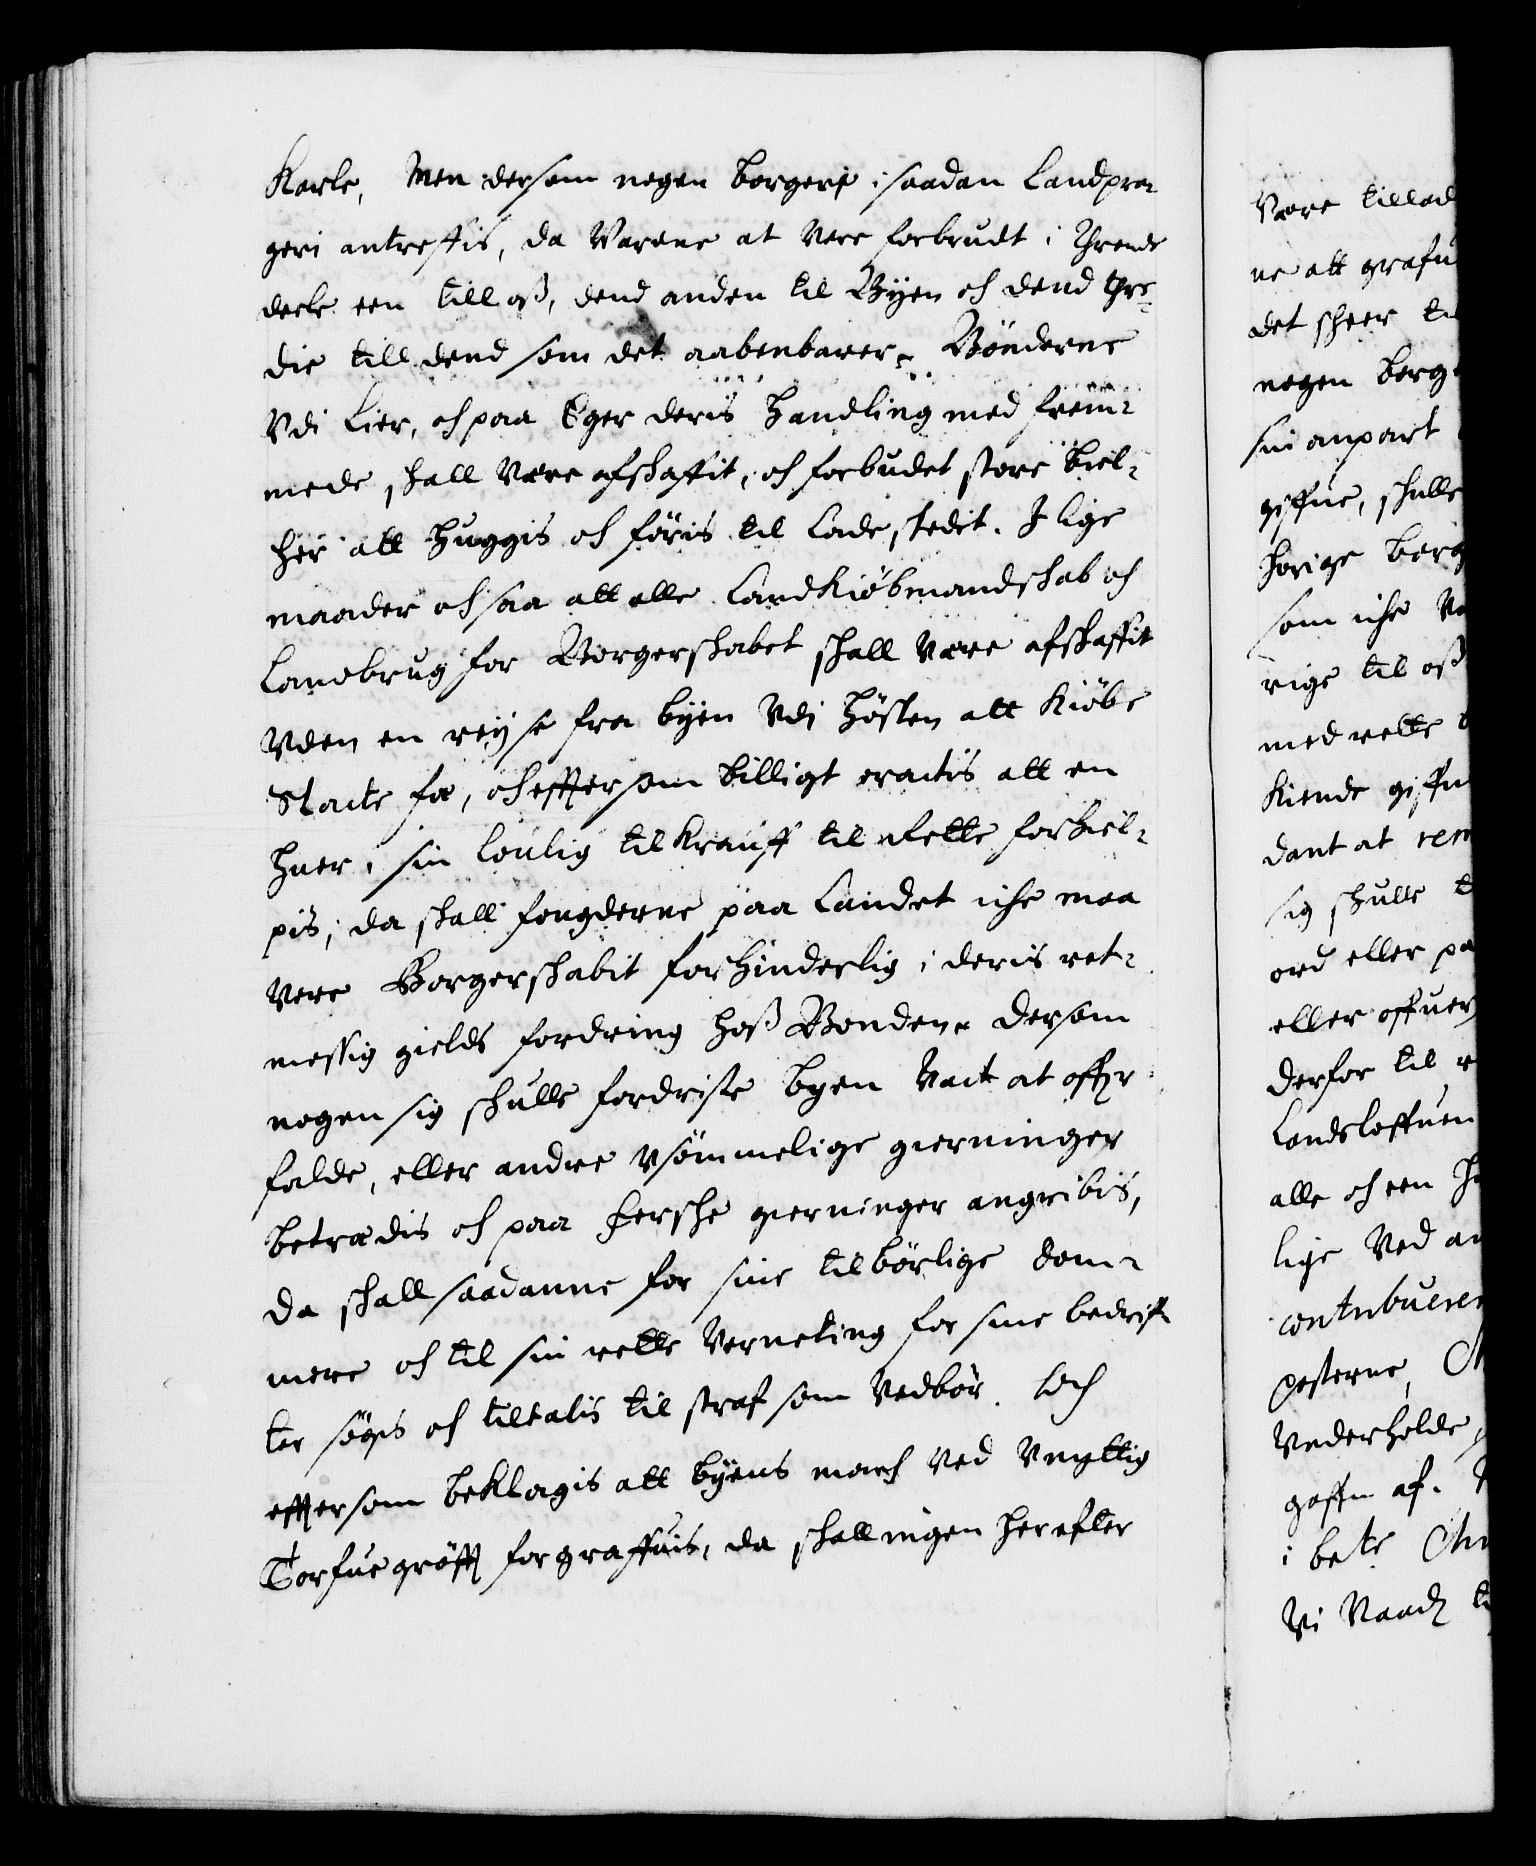 Karle, Men dersom nogen borgere i saadan Landpra-
geri antreffis, da Varene at vere forbrudt i Thrende
deele een till oß, dend anden til Byen och dend thre-
die till dend som det aabenbarer. Bönderne
Udi Lier, och paa Eger deris Handling med frem-
mede skall Være afskaffit, och forbudet store biel-
cher att Huggis och föris til Ladestedet. I lige
maader och saa att alle Landkiöbmandskab och
Landbrug for Borgerskabet skall Være afskaffit
Uden en reyse fra byen Udi Hösten att Kiöbe
Slacte fæ, och effter som billigt eractis att en
Huer i sin Loulig tilkrauff til rette forhiel-
pis, da skall fougderne paa Landet iche maa
vere Borgerskabit forhinderlig i deris ret-
messig gields fordring hoß Bonden. Dersom
nogen sig skulle fordriste byen Vact at offer
falde, eller andre usömmelige gierninger
betrædis och paa ferske gierninger angribis,
da skall saadanne for sine tilbörlige dom-
mere och til sin rette Verneting for sine bedrif-
ter sögis och tiltalis til straf som Vedbör. Och
effter som beklagis att byens march Ved Unyttig
Torfue gröfft forgraffuis, da skall ingen herefter
Være tillad
ne att grafu
det scheer
nogen borg
sin anpart
giffue, skulle
horige borg
som iche
rige til oß
med rette
Kiende giffu
dant at
sig skulle
ord eller pa
eller offuer
derfor til
Landsloffuen
alle och een
lige Ved
contribuere
posterne,
Vnderholde
af.
i bete
Vi Naad